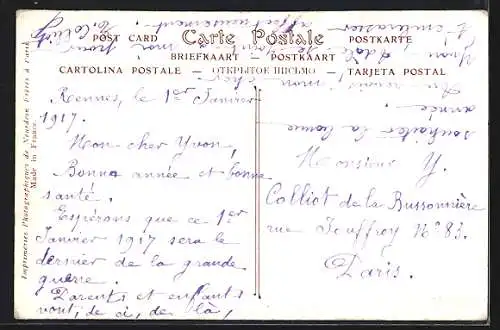 POST CARD
Carte Postale
POSTKARTE
BRIEFKAART — POSTKAART
CARTOLINA POSTALE — ОТКРЫТОЕ ПИСЬМО — TARJETA POSTAL
Imprimeries Photographiques de Neurdein Frères à Paris
Made in France.
Rennes, le 1er Janvier
1917.
Mon cher Yvon,
Bonne année et bonne
santé.
Espérons que ce 1er
Janvier 1917 sera le
dernier de la grande
guerre.
Parents et enfants
vont, de ci, de là,
souhaiter la bonne
année.
Au revoir mon cher
Yvon
t'embrasser
affectueusement
Monsieur Y.
Colliot de la Bussonnière
rue Jouffroy No 83.
Paris.